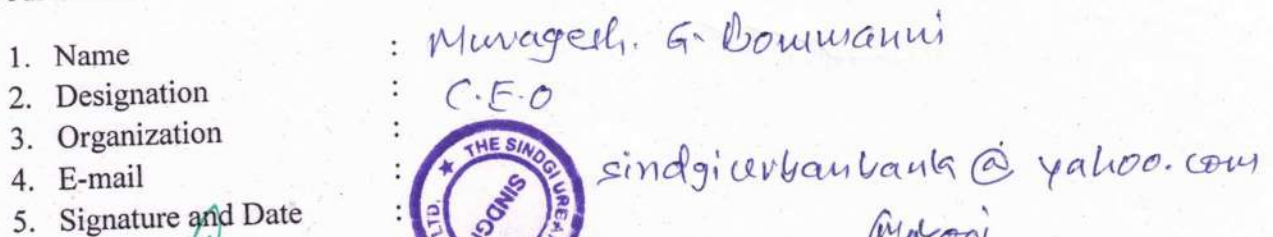 1. Name : Muragesh. G. Bommanni
2. Designation : C.E.O
3. Organization :
4. E-mail : sindgiurbanbank@yahoo.com
5. Signature and Date :
THE SINDGI URBA
SINDG
LTD.